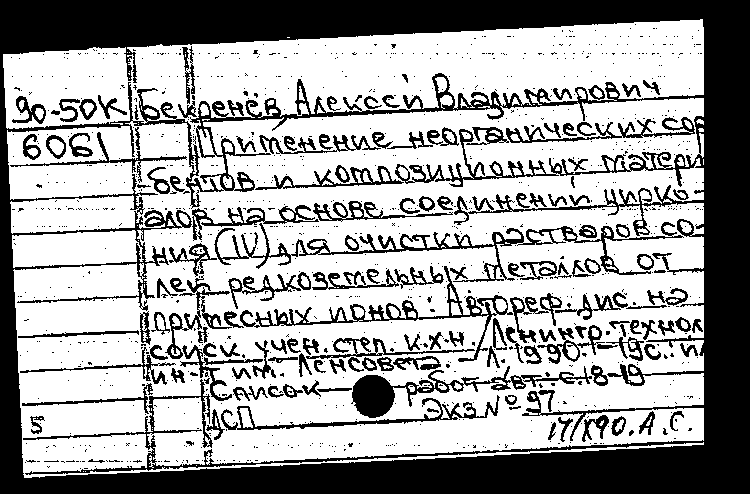 90-50К Бекренёв, Алексей Владимирович
6061 Применение неорганических сор
бентов и композиционных матери
алов на основе соединений цирко-
ния (IV) для очистки растворов со-
лей редкоземельных металлов от
примесных ионов: Автореф. дис. на
соиск. учен. степ. к.х.н. / Ленингр. технол
ин-т им. Ленсовета. – Л. 1990. – 19с.: ил
Список работ авт.: с.18-19
ДСП Экз № 97.
5 17/IX90. А.С.